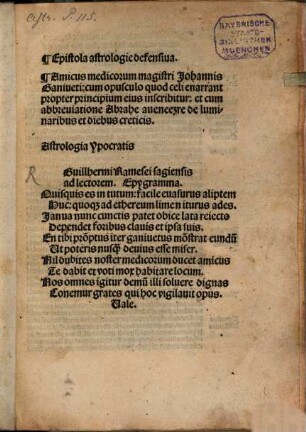 Astr. P. 115.
BAYERISCHE
STAATS-
BIBLIOTHEK
MUENCHEN
¶ Epistola astrologie defensiua.
¶ Amicus medicorum magistri Johannis
Ganiueti: cum opusculo quod celi enarrant
propter principium eius inscribitur: et cum
abbreuiatione Abrahe aueneezre de lumi
naribus et diebus creticis.
Astrologia Ypocratis
R
Guilhermi Ramesei sagiensis
ad lectorem. Epygramma.
Quisquis es in tutum: facile euasurus aliptem
Huc: quoqz ad ethereum limen iturus ades.
Janua nunc cunctis patet obice lata reiects
Dependet foribus clauis et ipsa suis.
En tibi prõptus iter ganiuetus mõstrat eundũ
Ut poteris nusq̃ deuius esse miser.
Nil dubites noster medicorum ducet amicus
Te dabit et voti mox habitare locum.
Nos omnes igitur demũ illi soluere dignas
Conemur grates qui hoc vigilauit opus.
Vale.